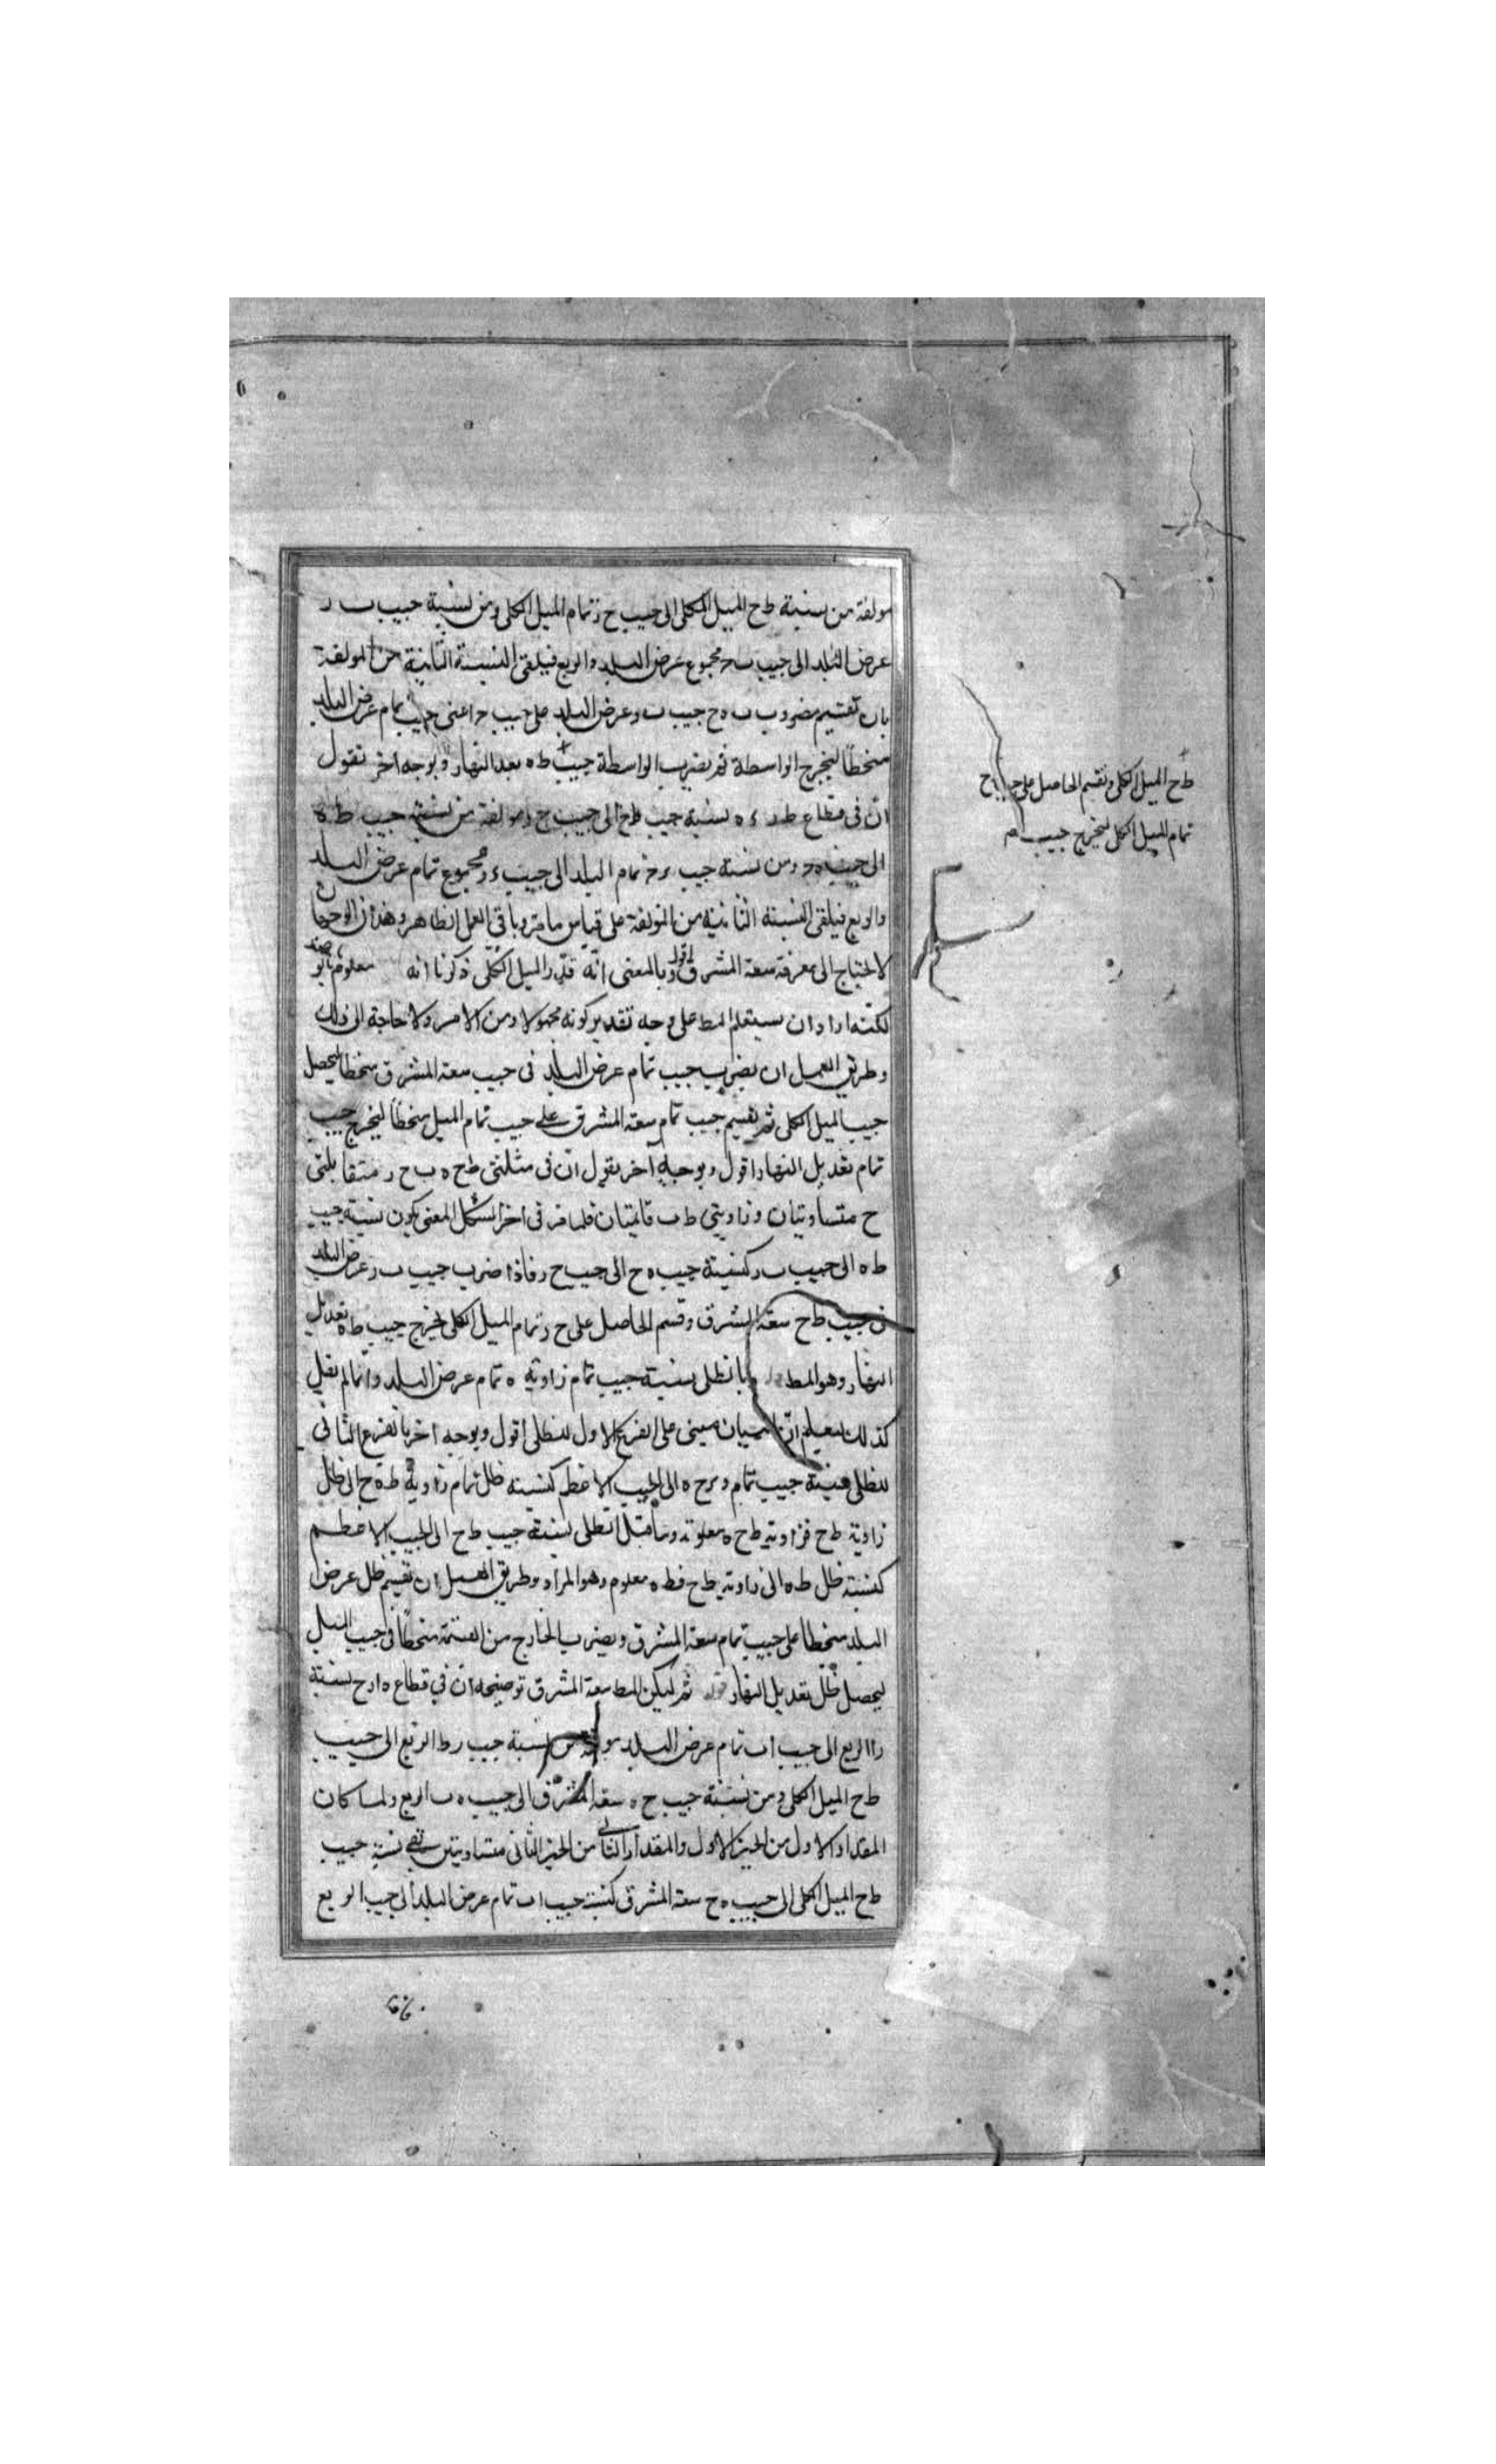 مولفة من نسبة ط ح الميل الكلى الى جيب ح ز تمام الميل الكلى ومن نسبة جيب ب ر
عرض البلد الى جيب ب د مجموع عرض البلد والربع فيلقى النسبة الثانية من المولفة
بان تقسيم مضروب ب ه ح جيب ب و عرض البلد على جيب د اعنى جيب تمام عرض البلد
منحطا ليخرج الواسطة ثم يضرب الواسطة جيب ط ه بعد النهار وبوجه اخر نقول
ان فى قطاع ط د ء ه نسبة جيب ط ح الى جيب ح د مولفة من نسبة جيب ط ه
الى جيب ه د ومن نسبة جيب تمام البلد الى جيب ء د مجموع تمام عرض البلد
والربع فيلقى النسبة الثانية من المولفة على قياس ما مر وباقى العمل الظاهر وهذان الوجهان
لا نحتاج الى معرفة سعة المشرق اقول وبالمعنى انه قدر الميل الكلى ذكرنا انه معلوم
لكنه اراد ان يستعلم المط على وجه تقدير كونه مجهولا ومن الامر ولا حاجة الى ذلك
وطريق العمل ان يضرب جيب تمام عرض البلد فى جيب سعة المشرق منحطا ليحصل
جيب الميل الكلى ثم نقسم جيب تمام سعة المشرق على جيب تمام الميل منحطا ليخرج جيب
تمام تعديل النهار اقول وبوجه آخر نقول ان فى مثلثى ط ح ه ب ح ر متقابلتى
ح متساويتان وزاويتى ط ب قايمتان فلما مر فى اخر الشكل المغنى يكون نسبة جيب
ط ه الى جيب ب ر كنسبة جيب ه ح الى جيب ح ر فاذا ضرب جيب ب ر عرض البلد
فى جيب ط ح سعة المشرق وقسم الحاصل على ح ر تمام الميل الكلى ليخرج جيب ط ه تعديل
النهار وهو المط وبالظلى نسبة جيب تمام زاوية ه تمام عرض البلد وانما لم نقل
كذلك ليعلم ان البيان مبنى على الفرع الاول للظلى اقول وبوجه اخر بالفرع الثانى
للظلى نسبة جيب تمام وتر ح ه الى الجيب الاعظم كنسبة ظل تمام زاوية ط ه ح الى ظل
زاوية ط ح فزاوية ط ح ه معلومة وما قبل الظلى نسبة جيب ط ح الى الجيب الاعظم
كنسبة ظل ط ه الى زاوية ط ح فط ه معلوم وهو المراد وطريق العمل ان نقسم ظل عرض
البلد منحطا على جيب تمام سعة المشرق ويضرب الخارج من القسمة منحطا فى جيب الميل
ليحصل ظل تعديل النهار قوله ثم ليكن المط سعة المشرق توضيحه ان فى قطاع ه ا ر ح نسبة
ر ا الربع الى جيب ا ب تمام عرض البلد مولفة من نسبة جيب ر ط الربع الى جيب
ط ح الميل الكلى ومن نسبة جيب ح ه سعة المشرق الى جيب ه ب الربع ولما كان
المقدار الاول من الحيز الاول والمقدار الثانى من الحيز الثانى متساويتين بقى نسبة جيب
ط ح الميل الكلى الى جيب ه ح سعة المشرق كنسبة جيب ا ب تمام عرض البلد الى جيب الربع
ط ح الميل الكلى ونقسم الحاصل على جيب ح
تمام الميل الكلى ليخرج جيب